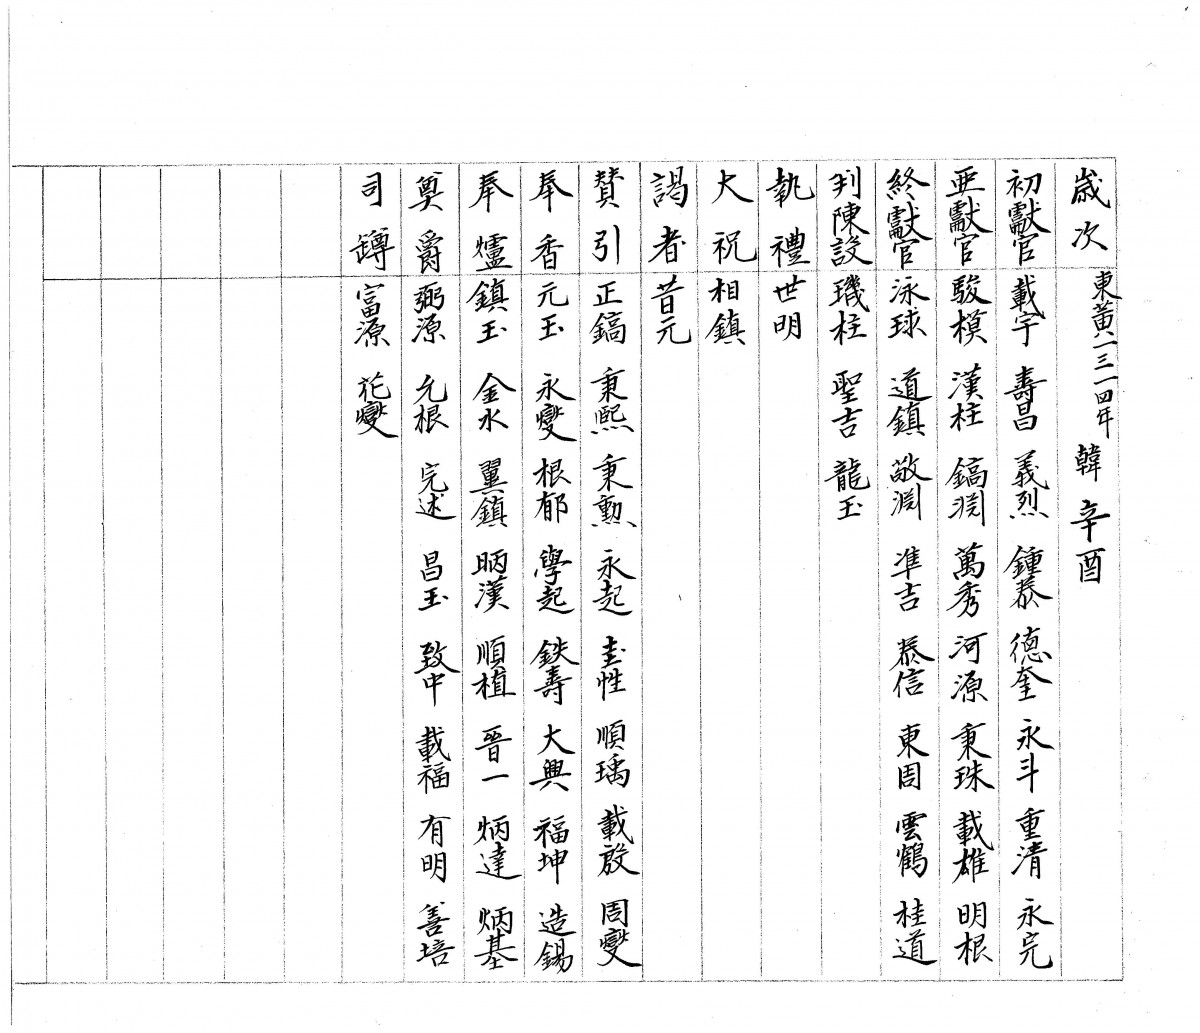 歲次 東黃二三一四年 韓 辛酉
初獻官 載宇 壽昌 義烈 鍾泰 德奎 永斗 重清 永完
亜獻官 駿模 漢柱 鎬淵 萬秀 河源 秉珠 載雄 明根
終獻官 泳球 道鎮 敬淵 準吉 泰信 東周 雲鶴 桂道
判陳設 璣柱 聖吉 龍玉
執禮 世明
大祝 相鎮
謁者 昔元
贊引 正鎬 秉熙 秉勲 永起 圭性 順瑀 載啟 周燮
奉香 元玉 永燮 根郁 學起 鉄壽 大興 福坤 造錫
奉爐 鎮玉 金水 翼鎮 昞漢 順植 晉一 炳達 炳基
奠爵 弼源 允根 完述 昌玉 致中 載福 有明 善培
司罇 富源 花燮